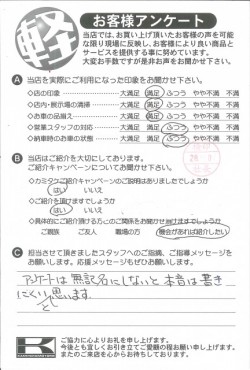 軽
お客様アンケート
当店では、お買い上げ頂いたお客様の声を可能
な限り現場に反映し、お客様により良い商品と
サービスを提供する事に努めています。
大変お手数ですが是非お声をお聞かせ下さい。
A 当店を実際にご利用になった印象をお聞かせ下さい。
◇店の印象 大満足 満足 ふつう やや不満 不満
◇店内・展示場の清掃 大満足 満足 ふつう やや不満 不満
◇お車の品揃え 大満足 満足 ふつう やや不満 不満
◇営業スタッフの対応 大満足 満足 ふつう やや不満 不満
◇納車時のお車の状態 大満足 満足 ふつう やや不満 不満
B 当店はご紹介を大切にしております。
ご紹介キャンペーンについてお聞かせ下さい。
◇カミタケご紹介キャンペーンのご説明はありましたでしょうか
はい いいえ
◇ご紹介を頂けますでしょうか
はい いいえ
◇具体的にご紹介頂ける方とのご関係をお聞かせ頂けますでしょうか
ご親族 ご友人 職場の方 機会があれば紹介したい
C 担当させて頂きましたスタッフへのご指摘、ご指導メッセージを
お願いします。応援メッセージもぜひお願いします。
アンケートは無記名にしないと本音は書き
にくいと思います
K
ご協力に心よりお礼を申し上げます。
今後とも宜しくお引き立てご愛顧の程お願い申し上げます。
またのご来店を心からお待ちしております。